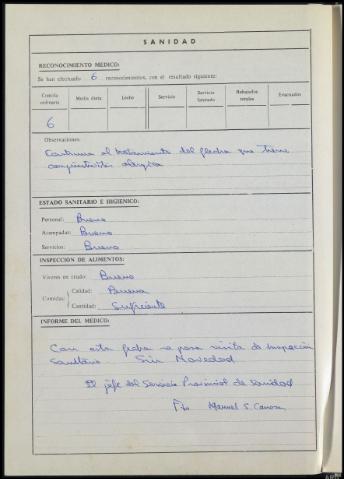 SANIDAD
RECONOCIMIENTO MEDICO:
Se han efectuado 6 reconocimientos, con el resultado siguiente:
Consulta ordinaria Media dieta Lecho Servicio Servicio limitado Rebajados totales Evacuados
6
Observaciones:
Continua el tratamiento del flecha que tiene
conjuntivitis alergica
ESTADO SANITARIO E HIGIENICO:
Personal: Bueno
Acampada: Bueno
Servicios: Bueno
INSPECCION DE ALIMENTOS:
Víveres en crudo: Bueno
Comidas: Calidad: Buena
Cantidad: Suficiente
INFORME DEL MEDICO:
Con esta fecha se pasa visita de Inspección
Sanitaria. Sin Novedad
El jefe del Servicio Provincial de Sanidad
Fdo Manuel S.